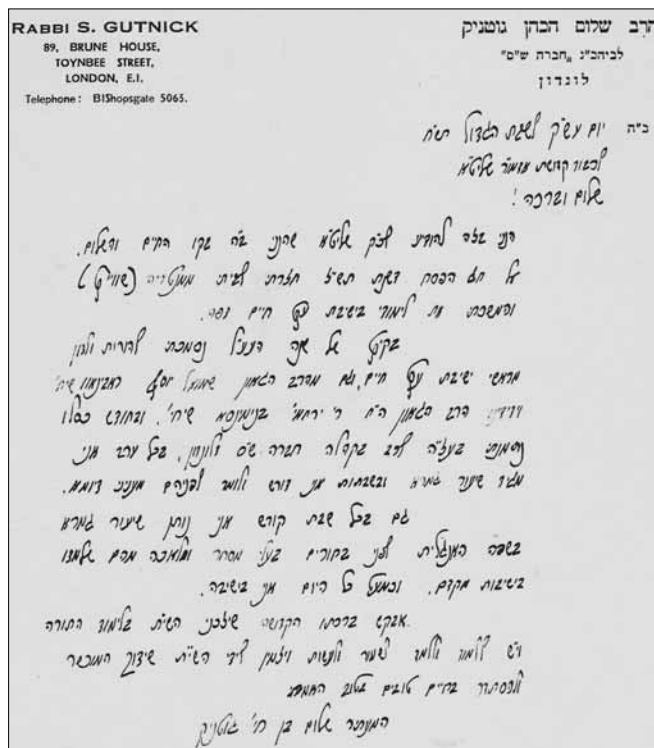 RABBI S. GUTNICK
89, BRUNE HOUSE,
TOYNBEE STREET,
LONDON, E.I.
Telephone: BIShopsgate 5063.
הרב שלום הכהן גוטניק
לביהכ"נ „חברת ש"ס"
לונדון
ב"ה יום עש"ק לשבת הגדול תש"ח
לכבוד קדושת אדמו"ר שליט"א
שלום וברכה!
הנני בזה להודיע לכ"ק שליט"א שהנני ב"ה בקו החיים והשלום.
על חג הפסח דשנת תש"ז חזרתי לבית (שווייץ)
והמשכתי את לימודי בישיבת עץ חיים פה.
בקיץ של שנה הנ"ל נסמכתי להורות ולדון
מראשי ישיבת עץ חיים, וגם מהרב הגאון שמואל יוסף ראבינאוו שיחי'
וידידינו הרב הגאון הח' ר' ירחמי' בנימינסאן שיחי'. ובחודש כסלו
נתמנתי בעזה"י לרב בקהלה חברה ש"ס דלונדון, בכל ערב אני
מגיד שיעור גמרא ובשבתות אני דורש ולומד לפניהם מעניני דיומא.
גם בכל שבת קודש אני נותן שיעור גמרא
בשפה האנגלית לפני בחורים בעלי מסחר ומלאכה מהם שלמדו
בישיבות מקדם. וכמעט כל היום אני בישיבה.
אבקש ברכתו הקדושה שיזכני השי"ת בלימוד התורה
וי"ש ללמוד וללמד לשמור ולעשות ויזמין לידי השי"ת שידוך המוכשר
ולהסתדר בחיים טובים בטוב
המעתיר שלום בן חי' גוטניק